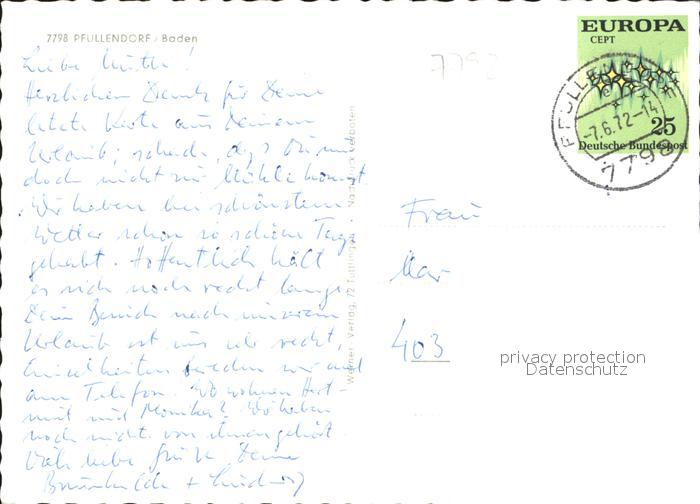 7798 PFULLENDORF / Baden
Liebe Mutti!
Herzlichen Dank für Deine
letzte Karte aus Deinem
Urlaub; schade, daß Du nun
doch nicht zu kommst.
Wir haben bei schönstem
Wetter schon so schöne Tage
gehabt. Hoffentlich hält
es sich noch recht lange.
Dein Besuch nach unserem
Urlaub ist uns sehr recht,
Einzelheiten bereden wir mal
am Telefon. Wo wohnen Hart-
mut und Monika? Wir haben
noch nicht von ihnen gehört.
Viele liebe Grüße Deine
Brunhilde + Ludwig
Werner Verlag, 72 Tuttlingen • Nachdruck verboten
7798
EUROPA
CEPT
25
Deutsche Bundespost
PFULLENDORF
-7.6.72-14
7798
Frau
Mar
403
privacy protection
Datenschutz